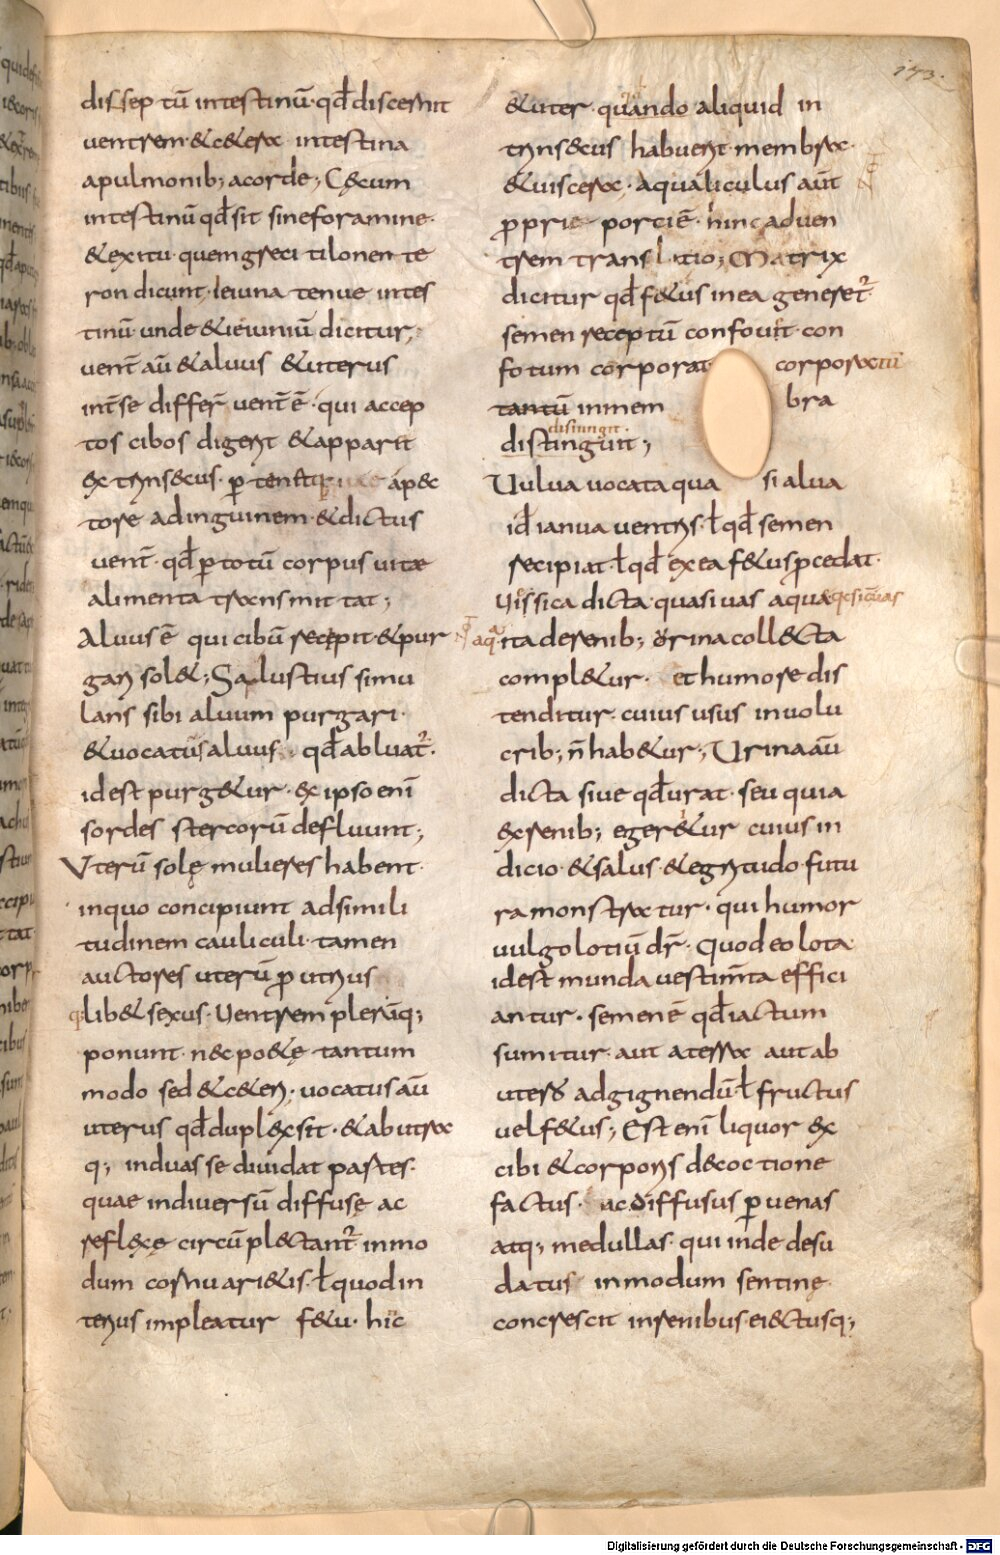 173.
disseptū intestinū· qđ discernit
uentrem· & c&era intestina
apulmonib; acorde; Cęcum
intestinū qđ sit sineforamine·
& exitu· quem greci tilonente
ron dicunt· Ieiuna tenue intes
tinū unde & ieiuniū dicitur;
uent̄ aū & aluus & uterus
int̄ se differt̄ uent̄ ē· qui accep
tos cibos digerit & apparet
extrinsecus· ꝑ apec
tore adinguinem & dictus
uent̄· qđ ꝑ totū corpus uitae
alimenta transmittat;
Aluus ē qui cibū recepit & pur
gari sol&; Salustius simu
lans sibi aluum purgari·
& uocatus aluus· qđ abluat̄·
idest purg&ur· ex ipso enī
sordes stercorū defluunt;
Uterū solę mulieres habent·
inquo concipiunt adsimili
tudinem cauliculi· tamen
auctores uterū ꝓ utrius
lib& sexus· Uentrem plerūq;
ponunt· nec po&ę tantum
modo sed & c&eri· uocatus aū
uterus qđ duplex sit· & ab utra
q; induas se diuidat partes·
quae indiuersū diffusę ac
reflexę circūplectant̄ inmo
dum cornu ari&is· ł quod in
terius impleatur f&u· hic
& uter· quando aliquid in
trinsecus habuerit· membra·
& uiscera· aqualiculus aūt
ꝓprie porci ē· hinc aduen
trem translatio; Matrix
dicitur qđ f&us inea gener&̄·
semen receptū confouit· con
fotum corporat corporatū
tantū inmem bra
disiungit·
distinguit;
Uulua uocata qua si alua
iđ ianua uentris· ł qđ semen
recipiat· ł qđ ex ea f&us ꝓcedat·
Uissica dicta quasi uas aqua
ita derenib; urina collecta
compl&ur· et humore dis
tenditur· cuius usus inuolu
crib; n̄ hab&ur; Urina aū
dicta siue qđ urat· seu quia
exrenib; eger&ur cuius in
dicio & salus & egritudo futu
ra monstratur· qui humor
uulgo lotiū dr̄· Quod eo lota
idest munda uestimt̄a effici
antur· semen ē qđ iactum
sumitur· aut aterra aut ab
utero adgignendū ł fructus
uel f&us; Est enī liquor ex
cibi & corporis decoctione
factus· ac diffusus ꝑ uenas
atq; medullas· qui inde desu
datus inmodum sentinę
concrescit inrenibus· eiectusq;
Digitalisierung gefördert durch die Deutsche Forschungsgemeinschaft - DFG